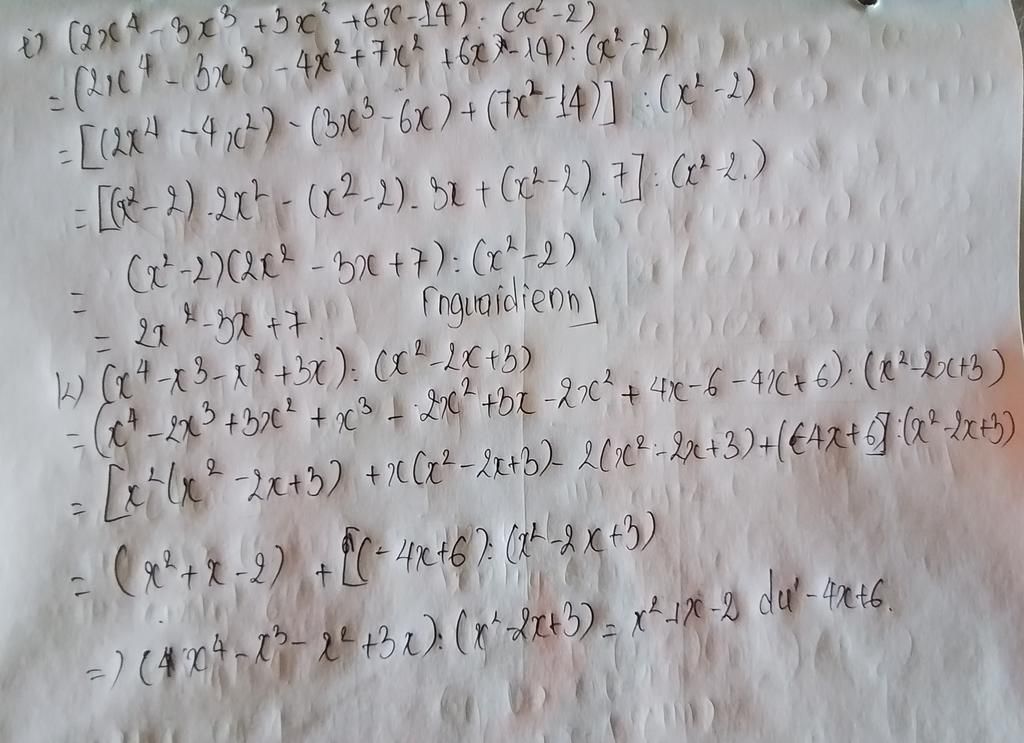 i) (2x⁴ - 3x³ + 3x² + 6x - 14) : (x² - 2)
= (2x⁴ - 3x³ - 4x² + 7x² + 6x - 14) : (x² - 2)
= [(2x⁴ - 4x²) - (3x³ - 6x) + (7x² - 14)] : (x² - 2)
= [(x² - 2) . 2x² - (x² - 2) . 3x + (x² - 2) . 7] : (x² - 2)
= (x² - 2)(2x² - 3x + 7) : (x² - 2)
= 2x² - 3x + 7 [nguaidienn]
k) (x⁴ - x³ - x² + 3x) : (x² - 2x + 3)
= (x⁴ - 2x³ + 3x² + x³ - 2x² + 3x - 2x² + 4x - 6 - 4x + 6) : (x² - 2x + 3)
= [x²(x² - 2x + 3) + x(x² - 2x + 3) - 2(x² - 2x + 3) + (-4x + 6] : (x² - 2x + 3)
= (x² + x - 2) + [(-4x + 6) : (x² - 2x + 3)
=> (4x⁴ - x³ - x² + 3x) : (x² - 2x + 3) = x² + x - 2 dư - 4x + 6.